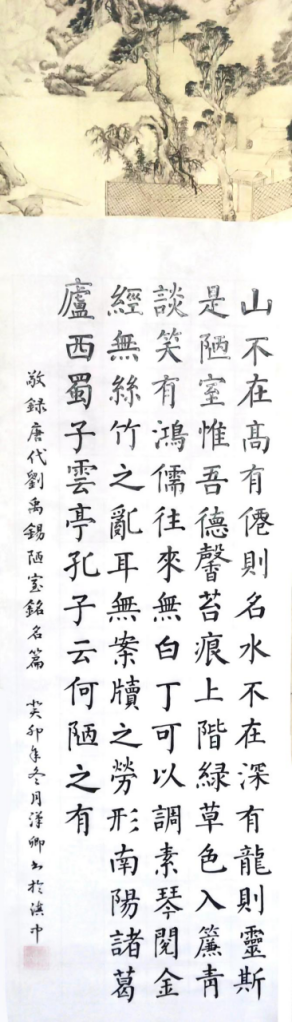 山不在髙有僊則名水不在深有龍則靈斯
是陋室惟吾德馨苔痕上階緑草色入簾青
談笑有鴻儒往來無白丁可以調素琴閱金
經無絲竹之亂耳無案牘之勞形南陽諸葛
廬西蜀子雲亭孔子云何陋之有
敬録唐代劉禹錫陋室銘名篇 癸卯年冬月漢卿書於滇中